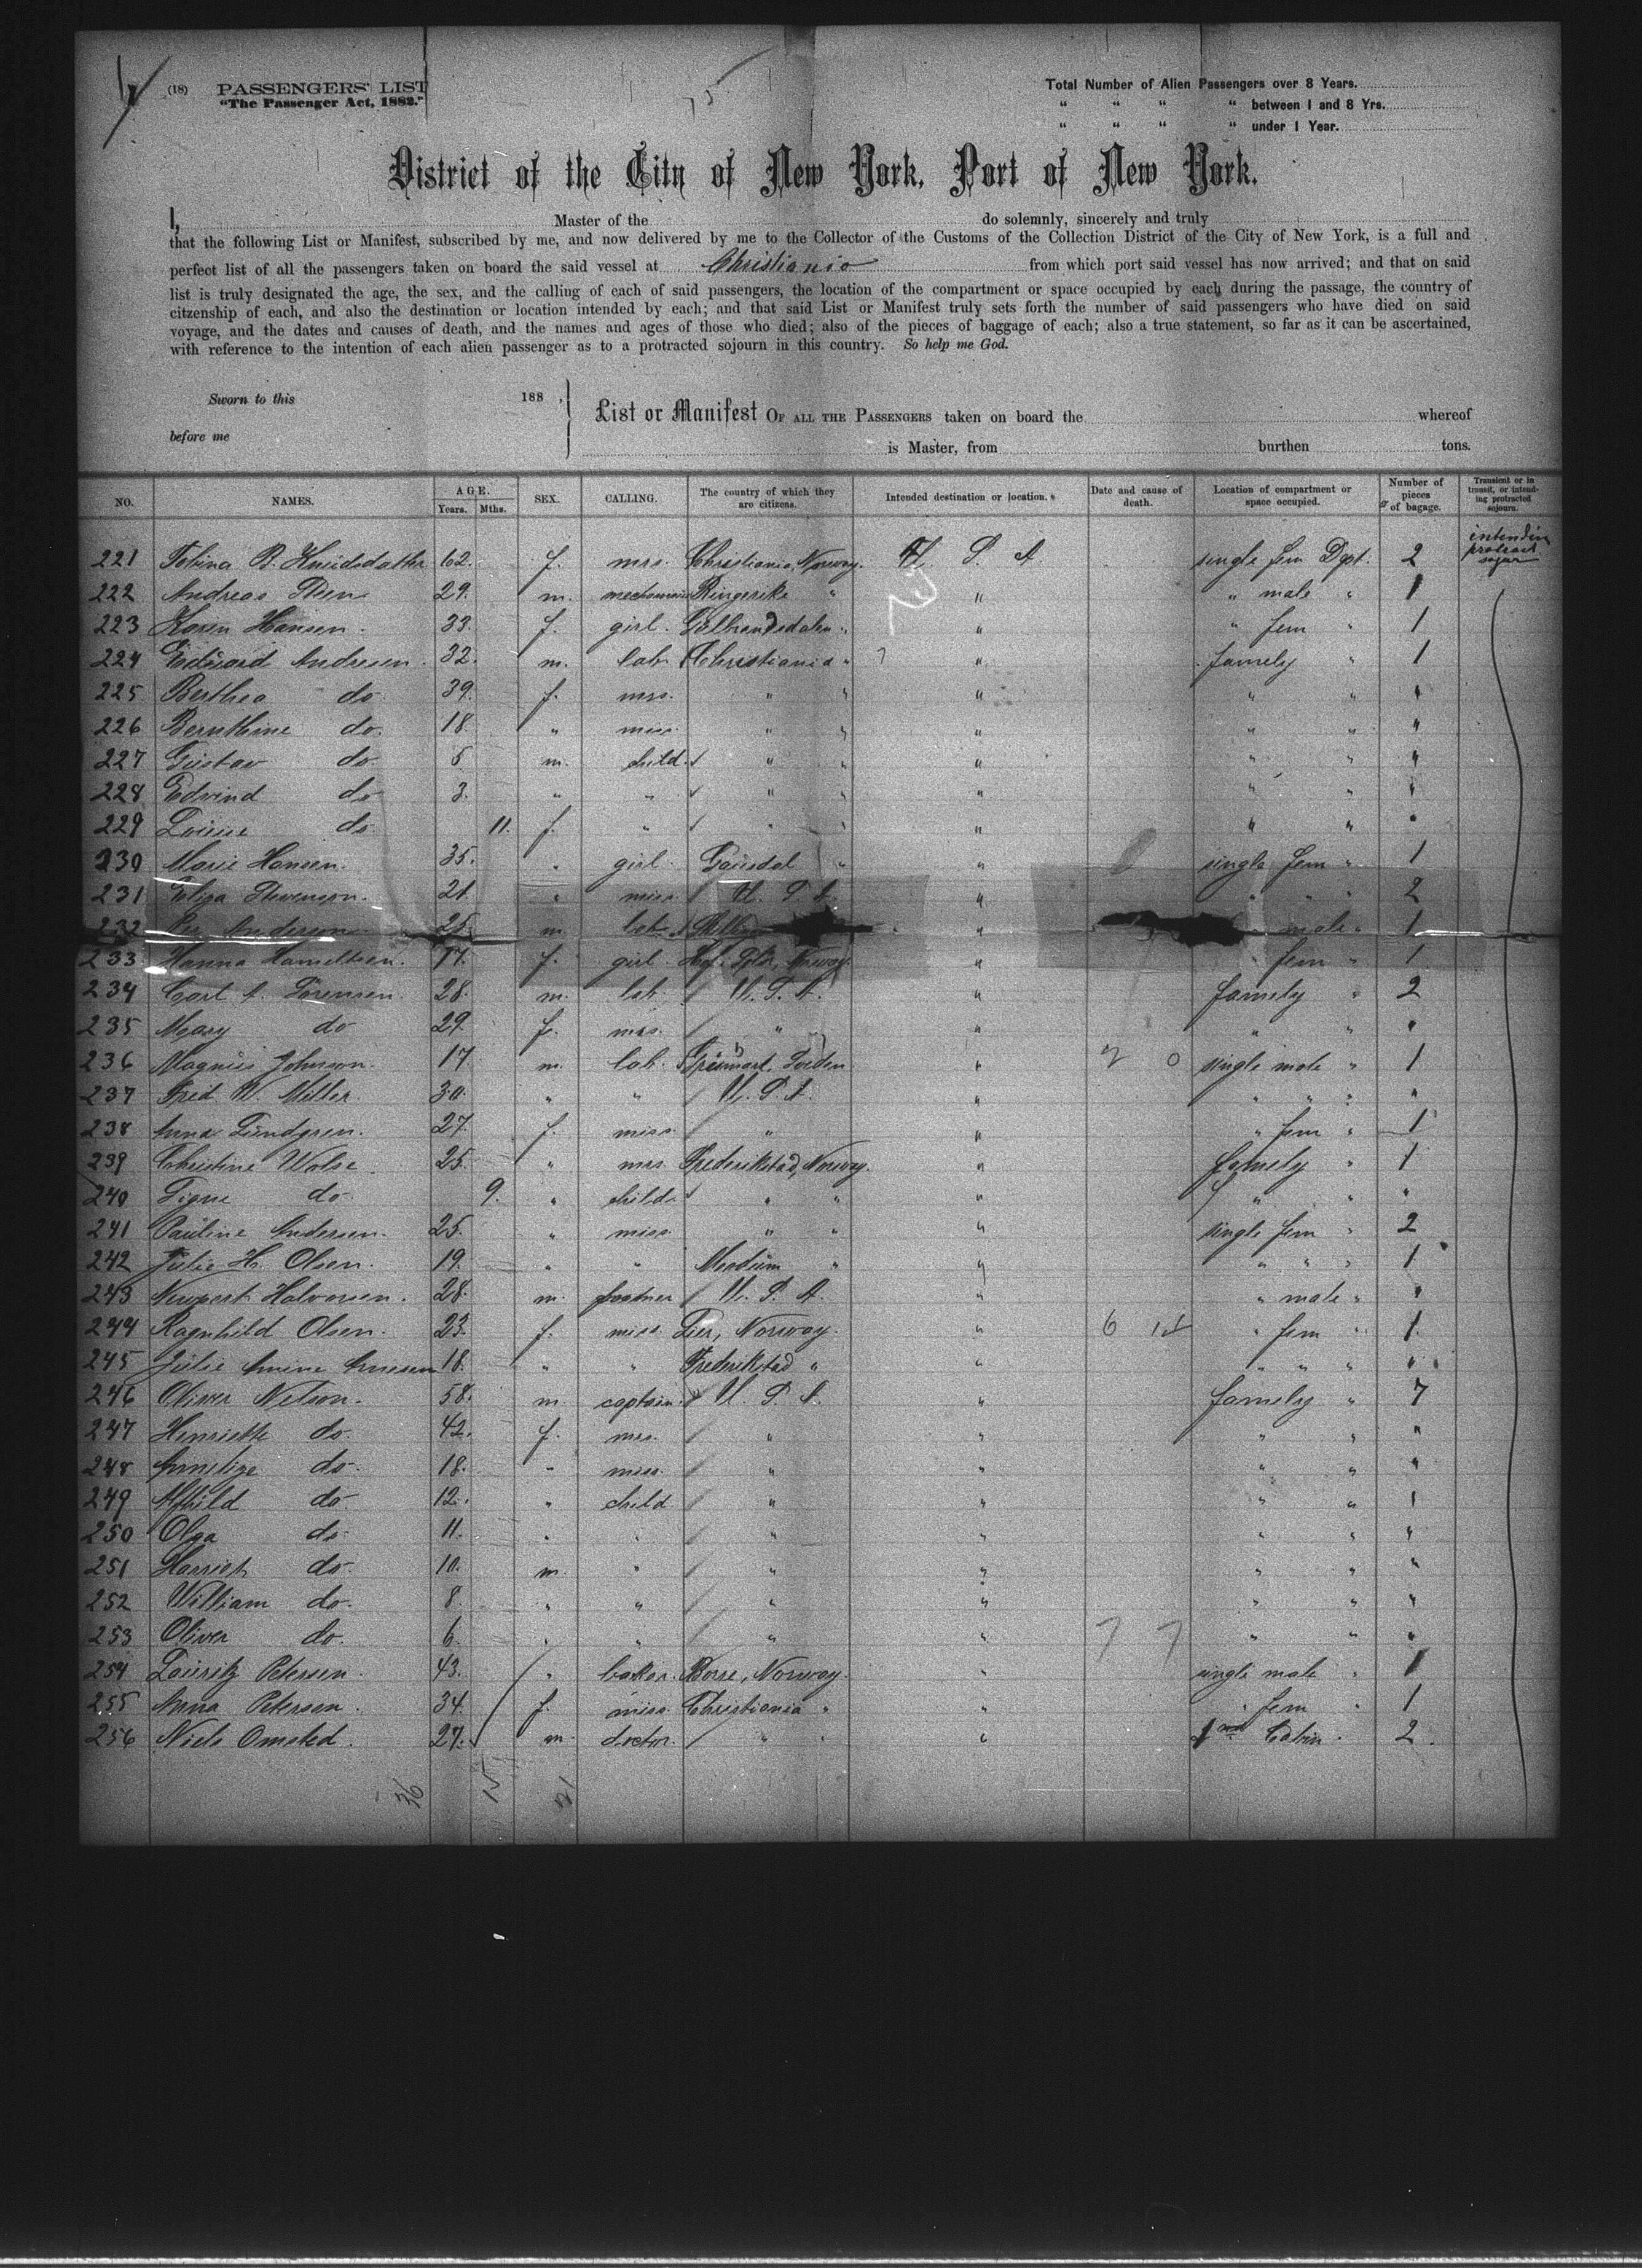 (18) PASSENGERS' LIST
"The Passenger Act, 1882."
Total Number of Alien Passengers over 8 Years.
" " " " between 1 and 8 Yrs.
" " " " under 1 Year.
District of the City of New York, Port of New York.
I, Master of the do solemnly, sincerely and truly
that the following List or Manifest, subscribed by me, and now delivered by me to the Collector of the Customs of the Collection District of the City of New York, is a full and
perfect list of all the passengers taken on board the said vessel at Christiania from which port said vessel has now arrived; and that on said
list is truly designated the age, the sex, and the calling of each of said passengers, the location of the compartment or space occupied by each during the passage, the country of
citzenship of each, and also the destination or location intended by each; and that said List or Manifest truly sets forth the number of said passengers who have died on said
voyage, and the dates and causes of death, and the names and ages of those who died; also of the pieces of baggage of each; also a true statement, so far as it can be ascertained,
with reference to the intention of each alien passenger as to a protracted sojourn in this country. So help me God.
Sworn to this 188 ,
before me
List or Manifest OF ALL THE PASSENGERS taken on board the whereof
is Master, from burthen tons.
NO. NAMES. AGE. Years. Mths. SEX. CALLING. The country of which they are citizens. Intended destination or location. Date and cause of death. Location of compartment or space occupied. Number of pieces of bagage. Transient or in transit, or intending protracted sojourn.
221 Tobina B. Knudsdatter 62. f. mrs. Christiania, Norway. U. S. A. single fem Dept. 2
222 Andreas 29. m. Ringerike " " " male " 1
223 Karen Hansen. 33. f. girl. " " fem " 1
224 Edward Andresen. 32. m. lab. Christiania " " famely " 1
225 Berthea do 39. f. mrs. " " " " " "
226 Bernthine do. 18. " miss. " " " " " "
227 Gustav do. 5 m. child. " " " " " "
228 Edvind do 3. " " " " " " " "
229 Louise do. 11. f. " " " " " " "
230 Marie Hansen. 35. " girl. Gausdal " " single fem " 1
231 Eliza Stevenson. 21. " miss U. S. A. " " " " 2
232 Per Anderson 25. m. lab. " male " 1
233 Hanna 17. f. girl Norway. " fem " 1
234 Carl A. Sorensen. 28. m. lab. U. S. A. " famely " 2
235 Mary do 29. f. mrs. " " " " "
236 Magnus Johnson. 17. m. lab. " single male " 1
237 Fred W. Miller. 30. " " U. S. A. " " " " "
238 Anna Lundgren. 27. f. miss. " " " fem " 1
239 Christine 25. " mrs. Frederikstad, Norway. " famely " 1
240 Signe do 9. " child " " " " " "
241 Pauline Andersen. 25. " miss. " " " single fem " 2
242 Julie H. Olsen. 19. " " Modum " " " " " 1
243 Halvorsen. 28. m. U. S. A. " " male " "
244 Ragnhild Olsen. 23. f. miss. Lier, Norway. " " fem " 1
245 Julie 18. " " Frederikstad " " " " " "
246 Oliver Nelson. 58. m. captain. U. S. A. " famely " 7
247 Henriette do. 42. f. mrs. " " " " "
248 do. 18. " miss " " " " "
249 Alfhild do 12. " child " " " " "
250 Olga do 11. " " " " " " "
251 do 10. m. " " " " " "
252 William do. 8. " " " " " " "
253 Oliver do. 6 " " " " " " "
254 Lauritz Petersen. 43. " baker. Borre, Norway. " single male " 1
255 Anna Petersen. 34. f. miss. Christiania " " " fem " 1
256 Niels Omsted. 27. m. doctor. " " " Cabin. 2.
36 15 21